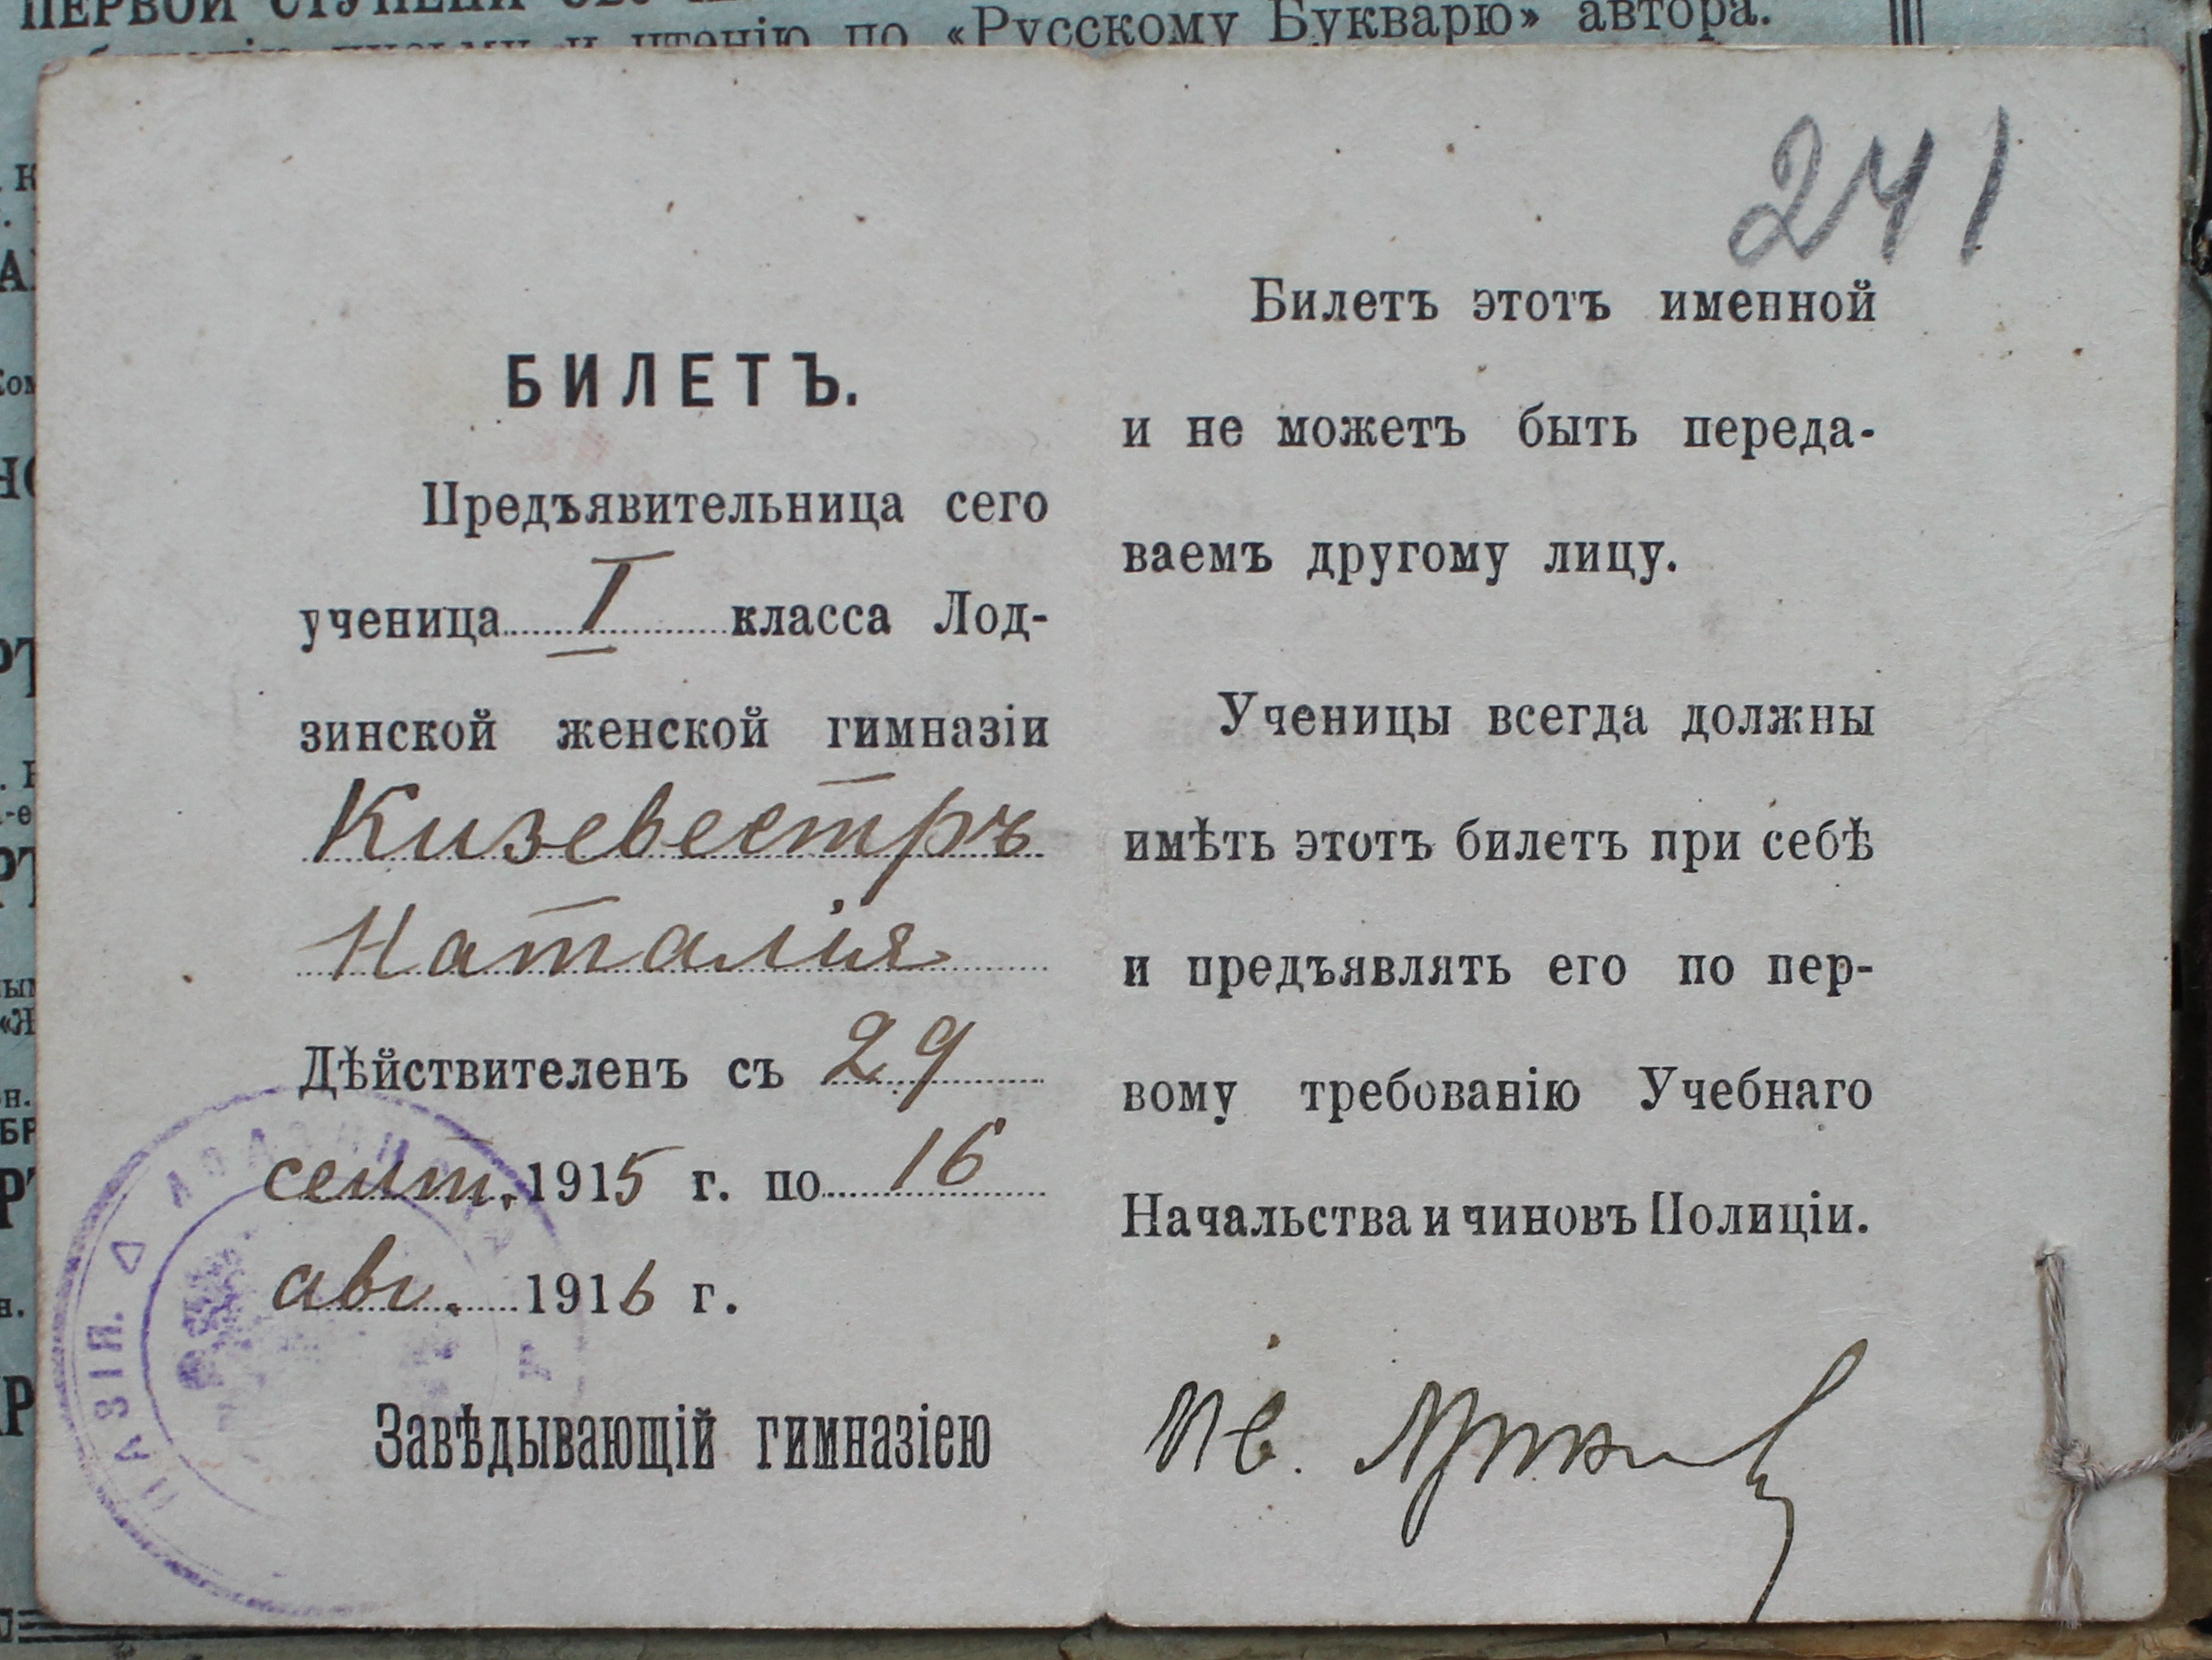 «Русскому Букварю» автора.
241
БИЛЕТЪ.
Предъявительница сего
ученица I класса Лод-
зинской женской гимназіи
Кизеветтръ
Наталія
Дѣйствителенъ съ 29
сент. 1915 г. по 16
авг. 1916 г.
Завѣдывающій гимназіею
Билетъ этотъ именной
и не можетъ быть переда-
ваемъ другому лицу.
Ученицы всегда должны
имѣть этотъ билетъ при себѣ
и предъявлять его по пер-
вому требованію Учебнаго
Начальства и чиновъ Полиціи.